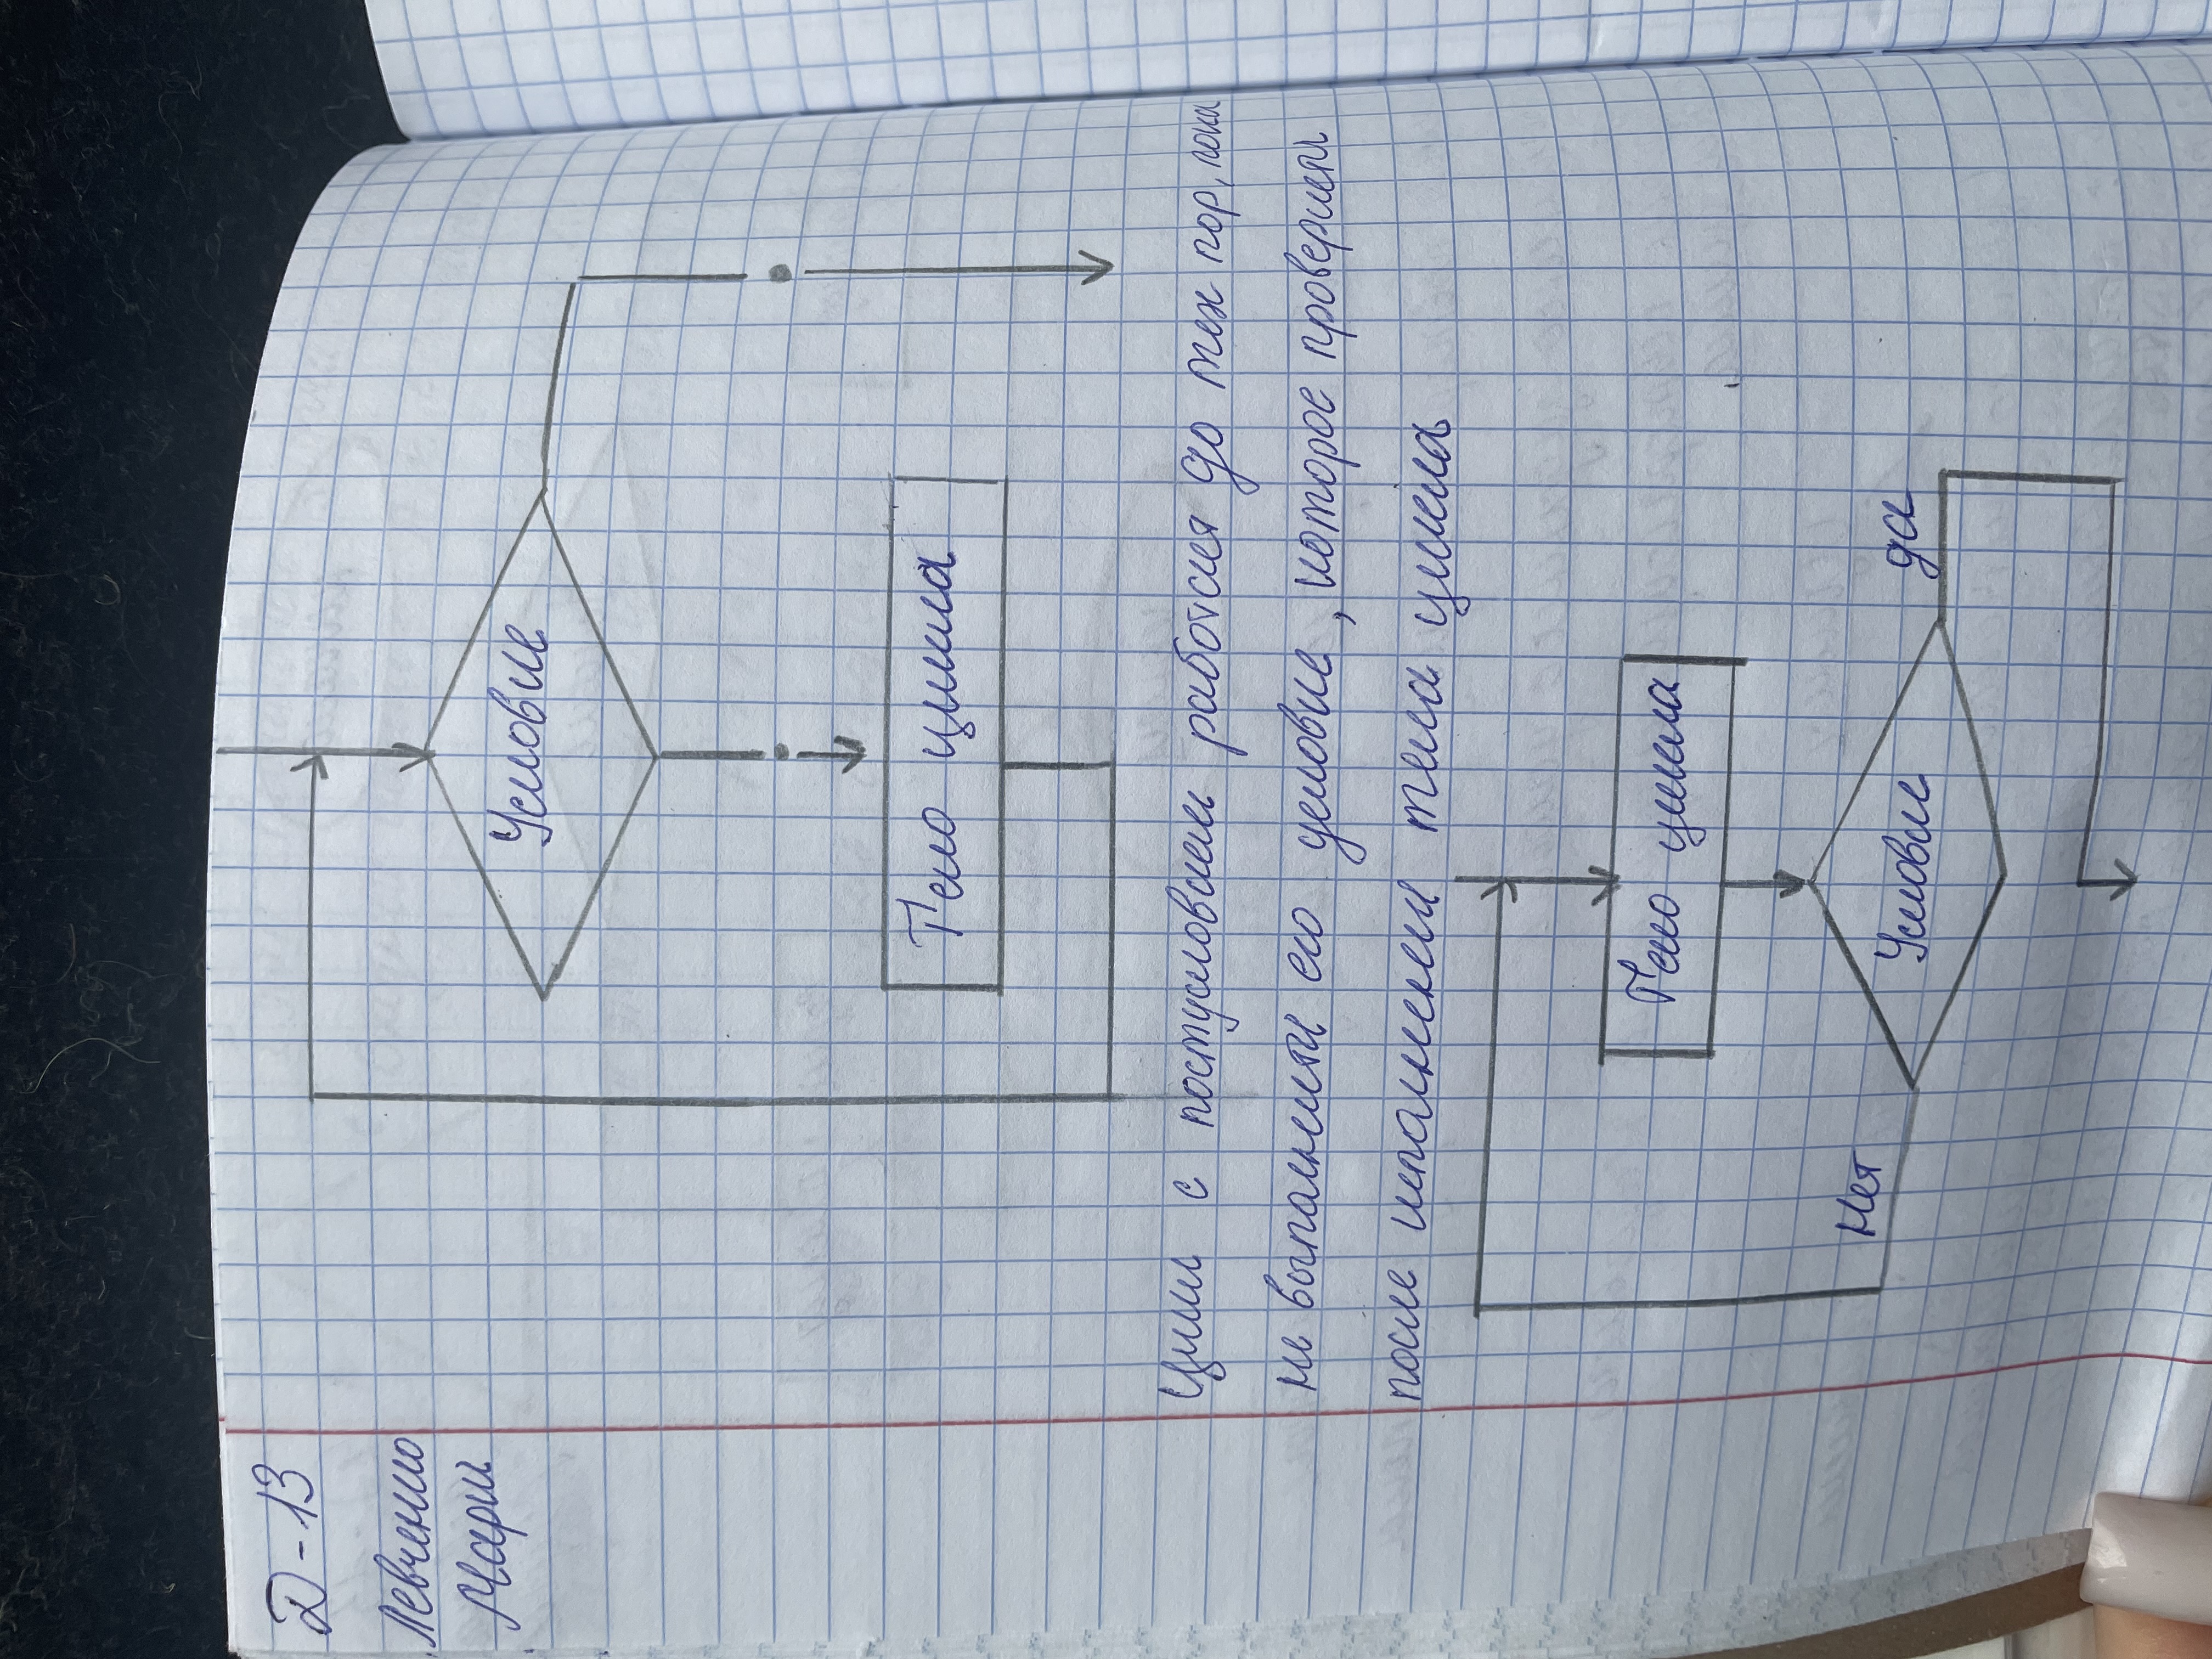 Д-13
Левченко
Мария
Условие
Тело цикла
Цикл с постусловием работся до тех пор, пока
не выполнится его условие, которое проверяется
после исполнения тела цикла
Тело цикла
да
Условие
нет